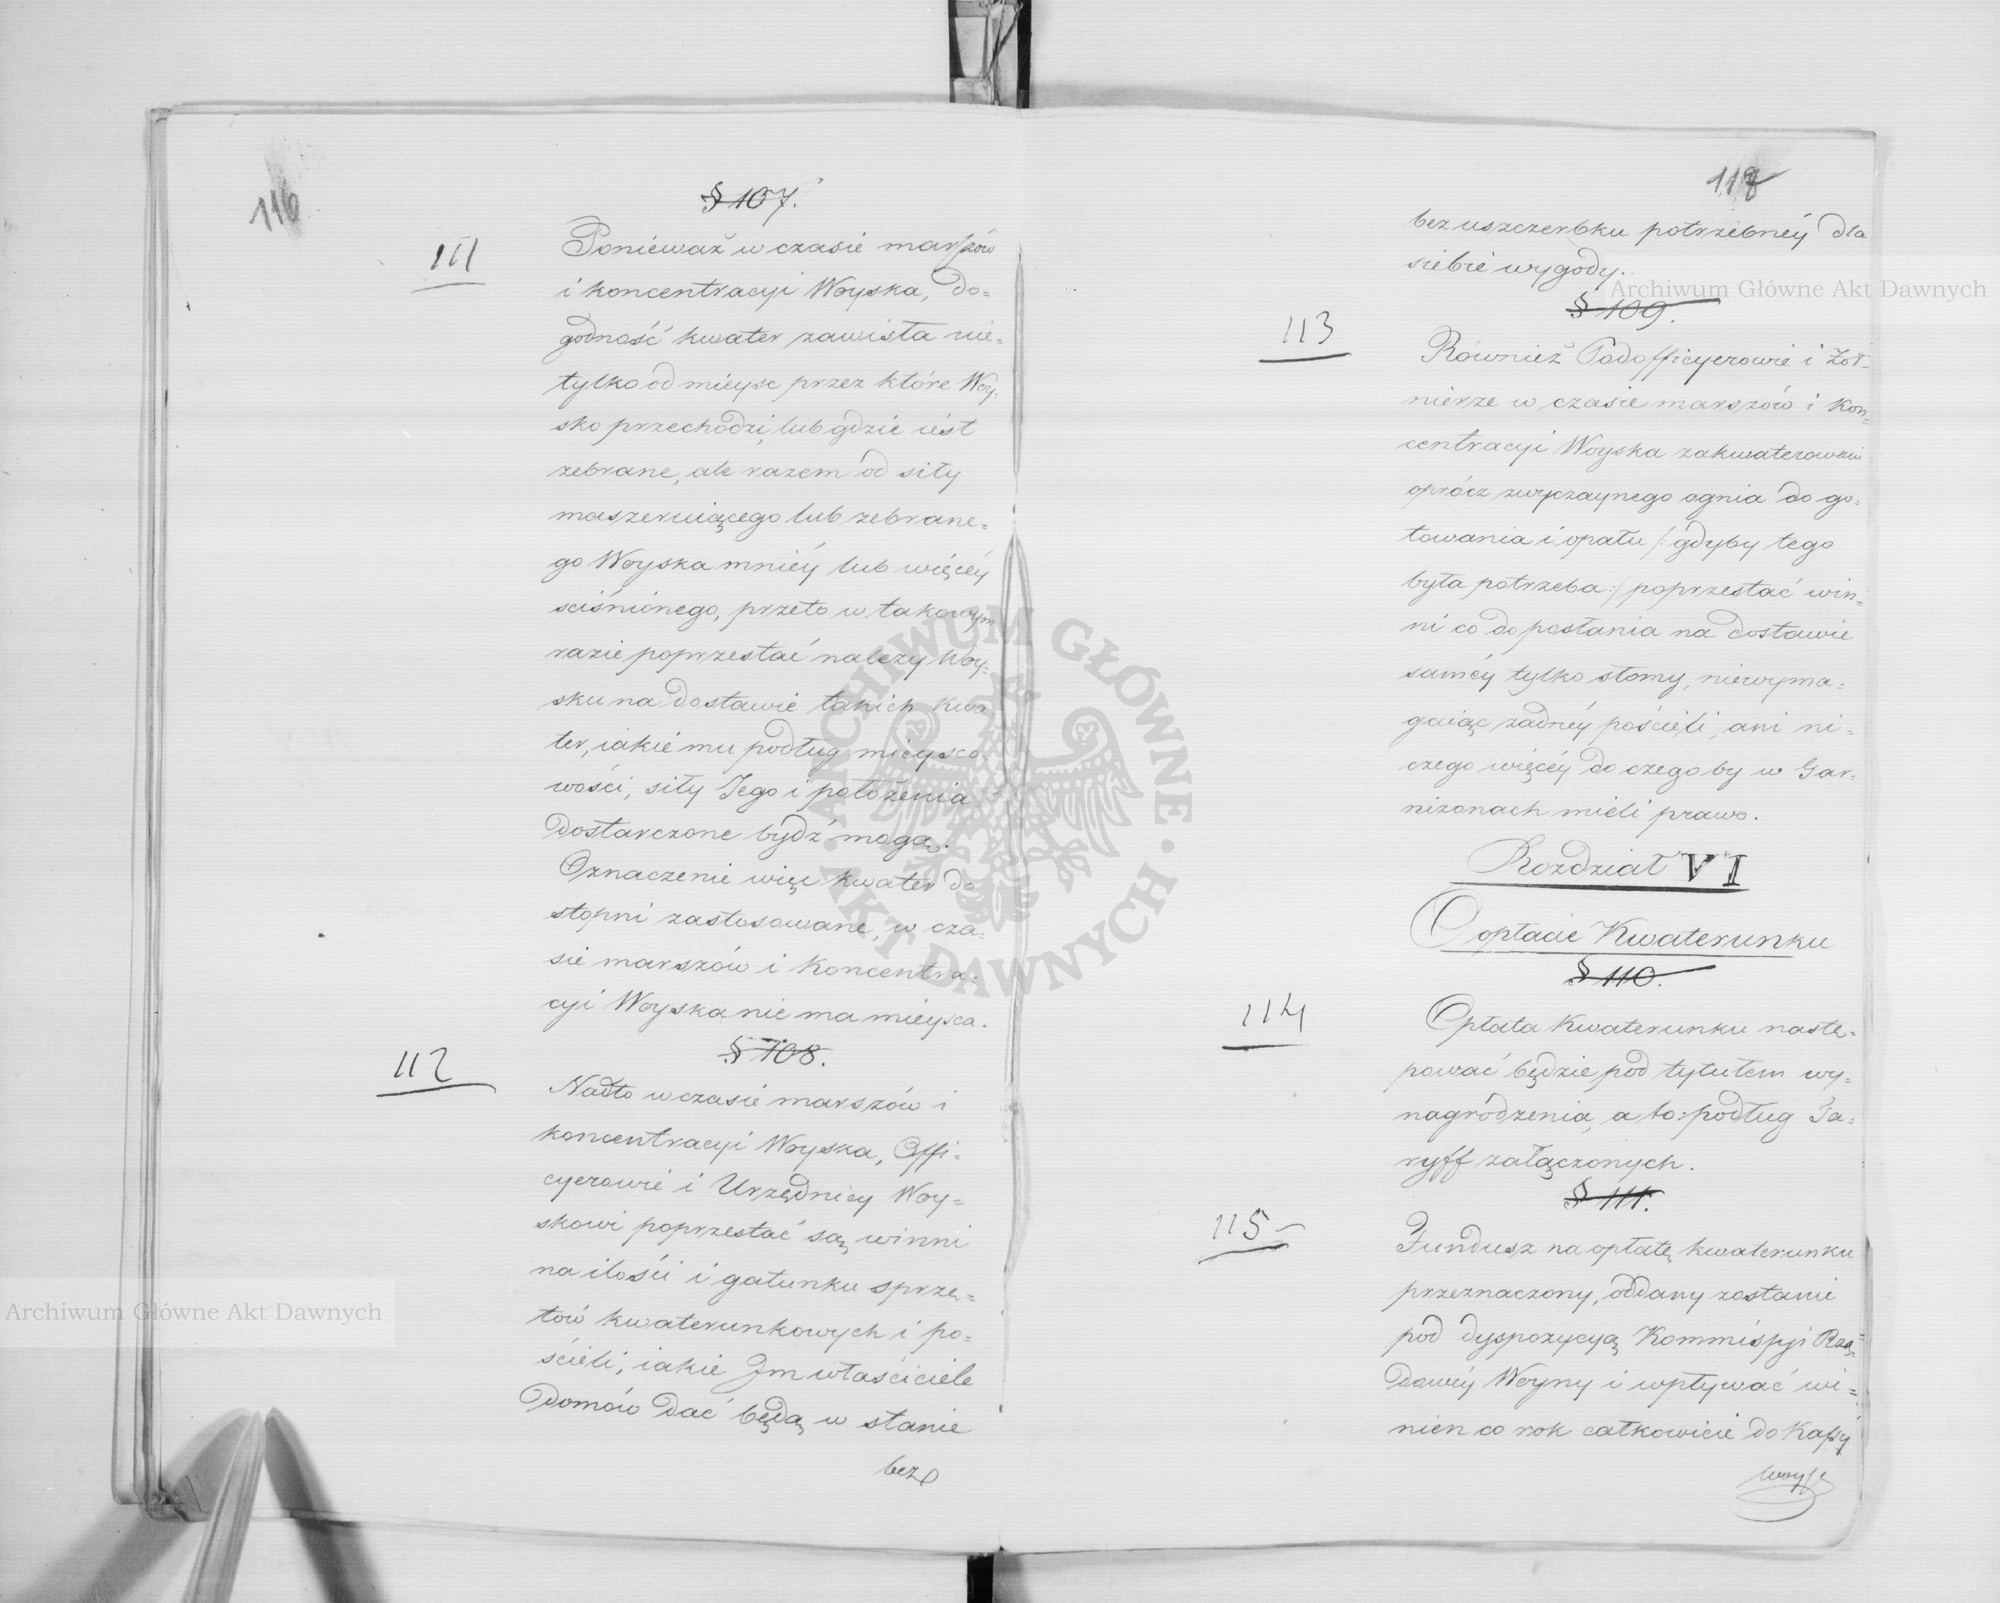 116
§ 107.
111
Ponieważ w czasie marszów
i koncentracyi Woyska, do=
godność kwater zawisła nie=
tylko od mieysc przez które Woy=
sko przechodzi, lub gdzie iest
zebrane, ale razem od siły
maszeruiącego lub zebrane=
go Woyska mniéy lub więcéy
sciśnionego, przeto w takowym
razie poprzestać należy Woy=
sku na dostawie takich kwa
ter, iakie mu podług mieysco=
wości, siły Jego i położenia
dostarczone bydź mogą.
Oznaczenie więc kwater do
stopni zastosowane, w cza=
sie marszów i Koncentra=
cyi Woyska nie ma mieysca.
§ 108.
112
Nadto w czasie marszów i
koncentracyi Woyska, Offi=
cyerowie i Urzędnicy Woy=
skowi poprzestać są winni
na ilości i gatunku sprzę=
tów kwaterunkowych i po=
ścieli, iakie Im właściciele
Domów dać będą w stanie
bez
118
bez uszczerbku potrzebnéy dla
siebie wygody.
§ 109.
113
Również Podofficyerowie i Żoł=
nierze w czasie marszów i Kon=
centracyi Woyska zakwaterowani
oprócz zwyczaynego ognia do go=
towania i opału /: gdyby tego
była potrzeba :/ poprzestać win=
ni co do posłania na dostawie
saméy tylko słomy, niewyma=
gaiąc żadnéy pościeli, ani ni=
czego więcéy do czego by w Gar=
nizonach mieli prawo.
Rozdział VI
O opłacie Kwaterunku
§ 110.
114
Opłata Kwaterunku nastę=
pować będzie pod tytułem wy=
nagrodzenia, a to: podług Ta=
ryff załączonych.
§ 111.
115
Fundusz na opłatę kwaterunku
przeznaczony, oddany zostanie
pod dyspozycyą Kommissyi Rzą=
dowéy Woyny i wpływać wi=
nien co rok całkowicie do Kassy
Archiwum Główne Akt Dawnych
Archiwum Główne Akt Dawnych
ARCHIWUM GŁÓWNE · AKT DAWNYCH ·